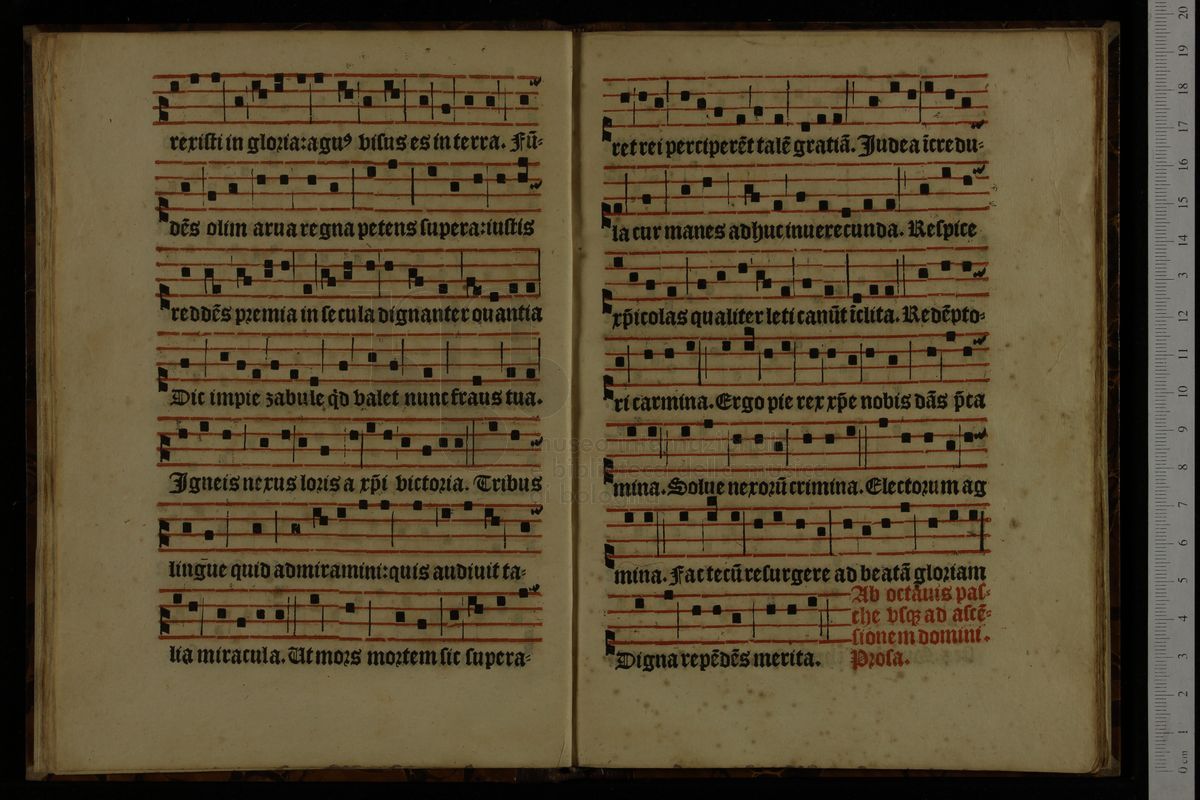 rexisti in gloria:agnꝰ visus es in terra. Fū-
dēs olim arua regna petens supera:iustis
reddēs premia in secula dignanter ouantia
Dic impie zabule qd valet nunc fraus tua.
Igneis nexus loris a xpi victoria. Tribus
lingue quid admiramini:quis audiuit ta-
lia miracula. Ut mors mortem sic supera-
ret rei perciperēt talē gratiā. Judea īcredu-
la cur manes adhuc inuerecunda. Respice
xpicolas qualiter leti canūt īclita. Redēpto-
ri carmina. Ergo pie rex xpe nobis dās pcta
mina. Solue nexorū crimina. Electorum ag
mina. Fac tecū resurgere ad beatā gloriam
Digna repēdēs merita.
Ab octauis pas-
che vsqꝫ ad ascē-
sionem domini.
Prosa.
museo internazionale
e biblioteca della musica
di bologna
20
19
18
17
16
15
14
3
12
11
10
9
8
7
6
5
4
3
2
1
0 cm